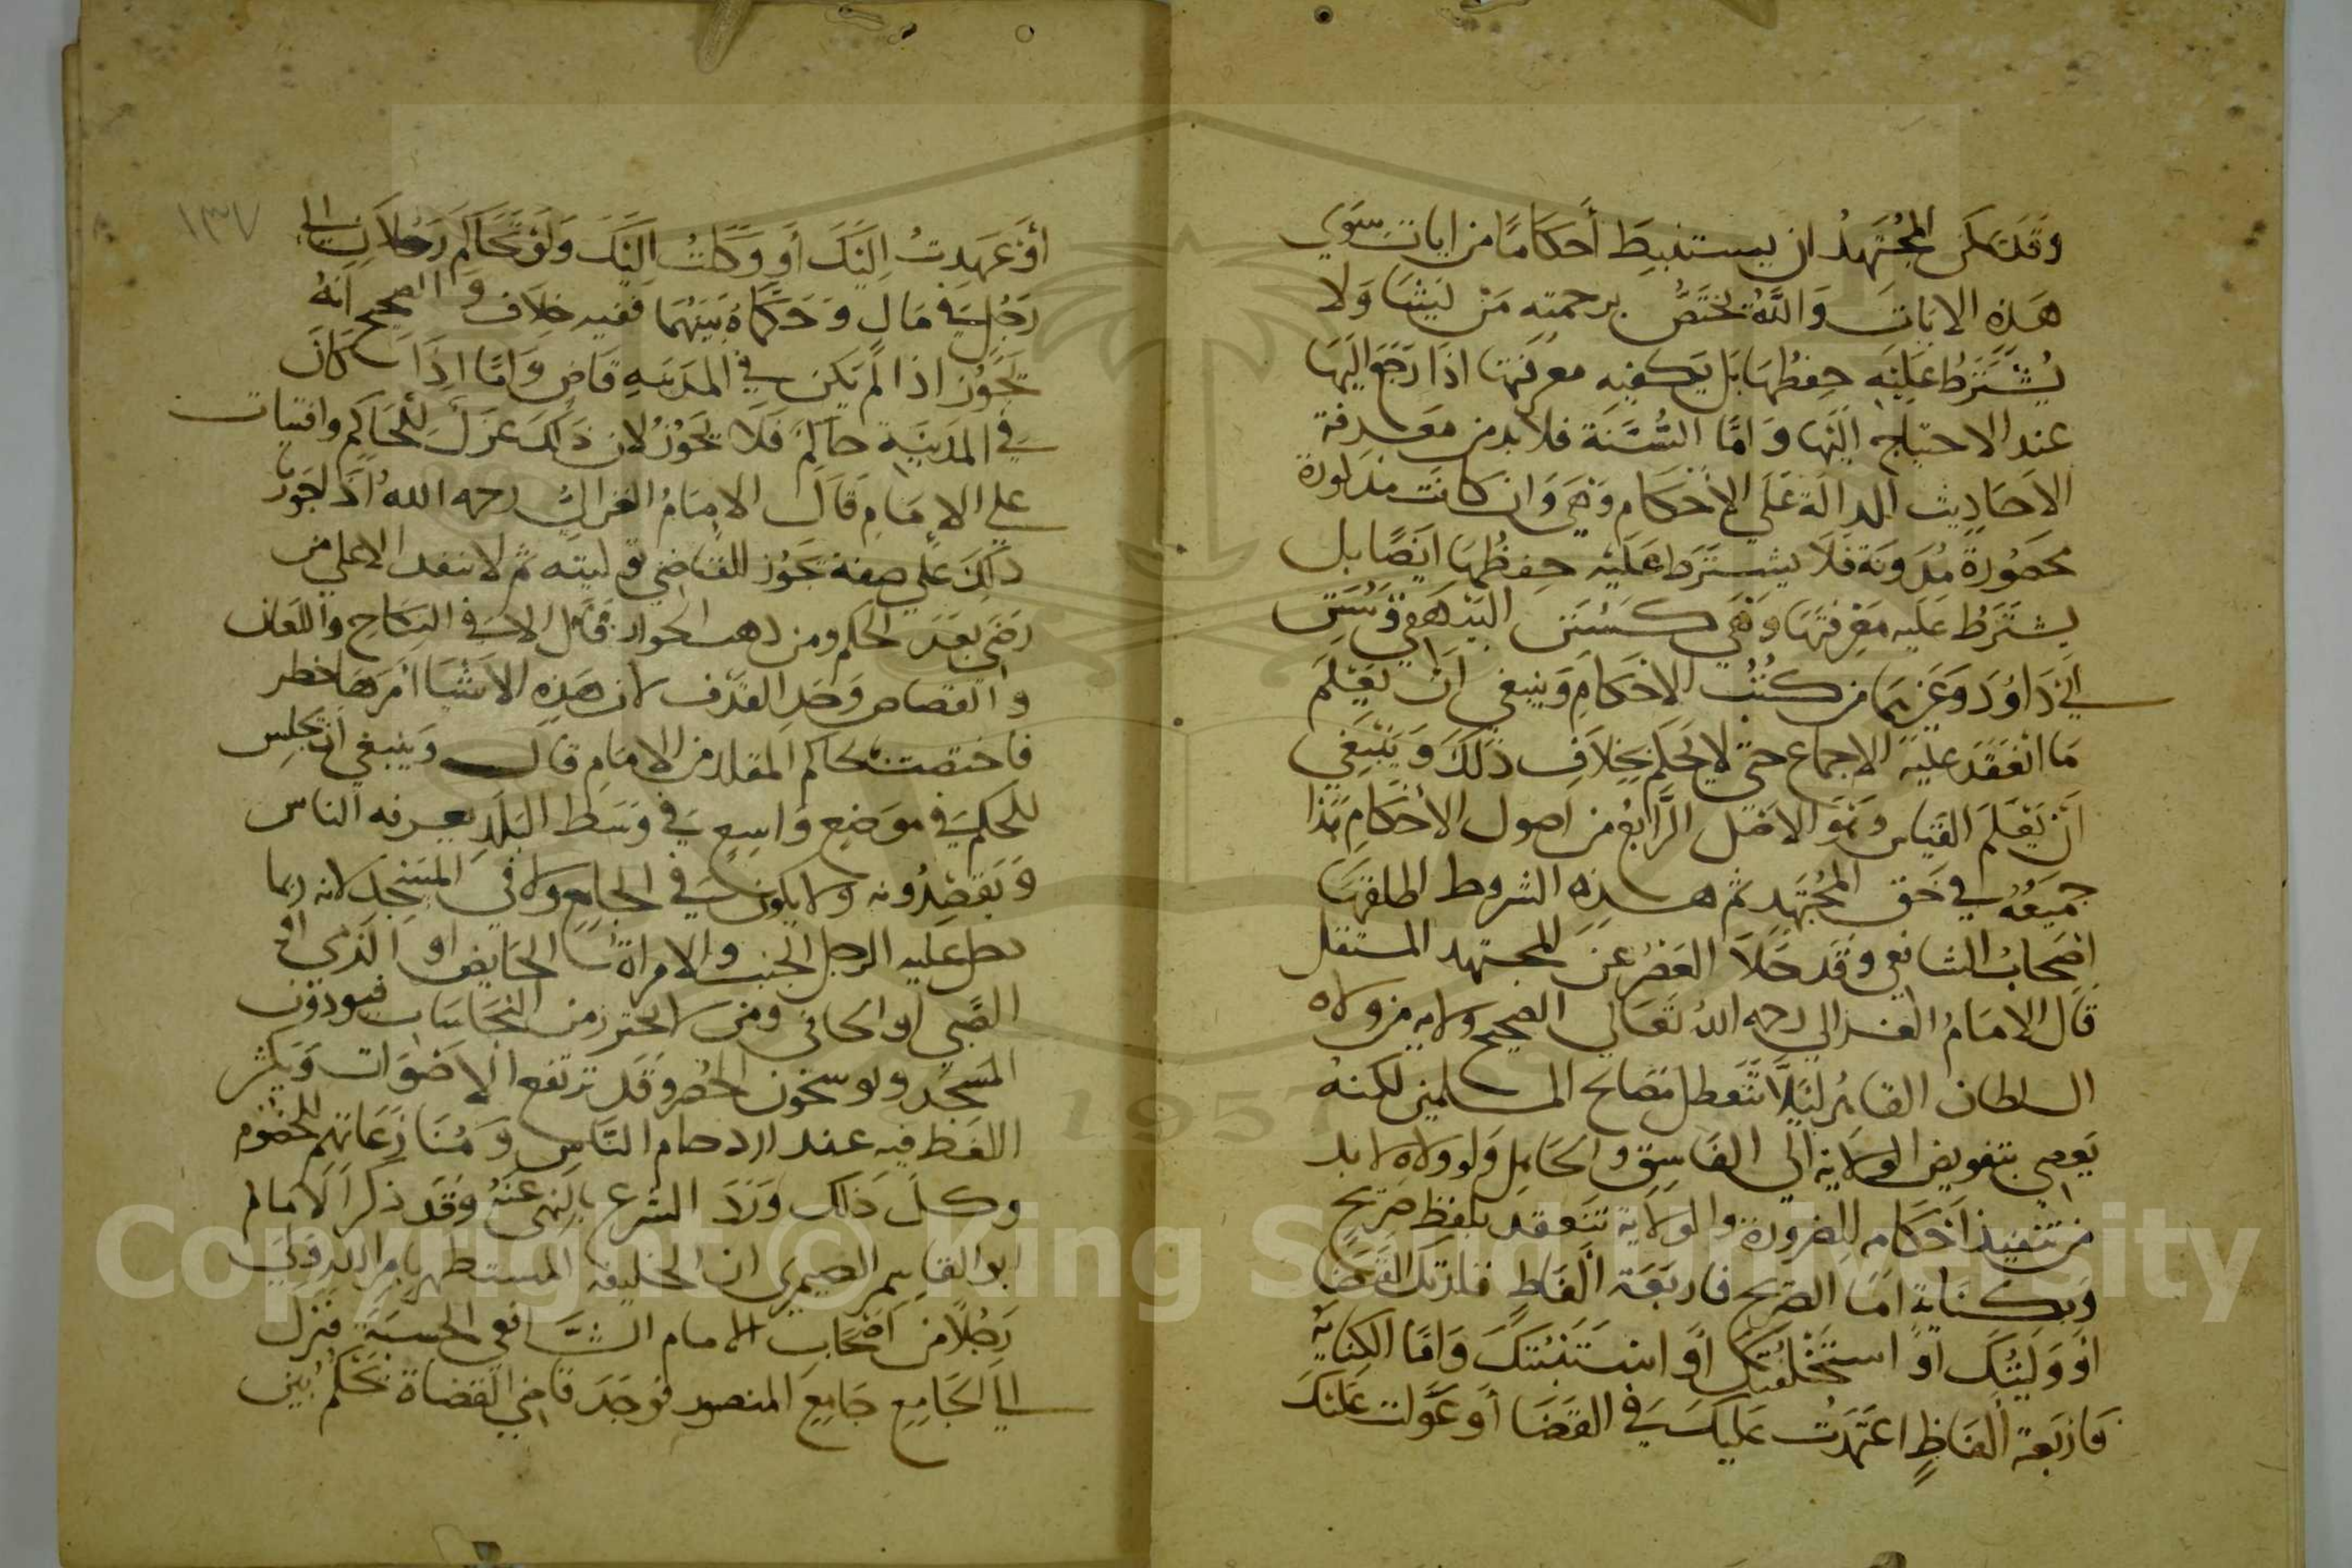 وقد تمكن المجتهد ان يستنبط أحكاما من ايات سوى
هذه الايات والله يختص برحمته من يشا ولا
يشترط عليه حفظها بل يكفيه معرفتها اذا رجع اليها
عند الاحتياج اليها واما السنة فلا بد من معرفة
الاحاديث الدالة على الاحكام وهي وان كانت مذكورة
محصورة مدونة فلا يشترط عليه حفظها ايضا بل
يشترط عليه معرفتها وهي كسنن البيهقي وسنن
ابي داود وغيرهما من كتب الاحكام وينبغي ان يعلم
ما انعقد عليه الاجماع حتى لا يحكم بخلاف ذلك وينبغي
أن يعلم القياس وهو الاصل الرابع من اصول الاحكام هذا
جميعه في حق المجتهد ثم هذه الشروط اطلقها
اصحاب الشافعي وقد خلا العصر عن المجتهد المستقل
قال الامام الغزالي رحمه الله تعالى الصحيح ولايه من ولاه
السلطان القاهر ليلا تتعطل مصالح المسلمين لكنه
يعصي بتفويض الولاية الى الفاسق والجاهل ولو ولاه لا بد
من تنفيذ احكامه للضرورة والولاية تنعقد بلفظ صريح
وبكناية اما الصريح فاربعة الفاظ قلدتك القضا
او وليتك او استخلفتك او استنبتك واما الكناية
فاربعة الفاظ اعتمدت عليك في القضا أو عولت عليك
١٣٧
أو عهدت اليك أو وكلت اليك ولو تحاكم رجلان الى
رجل في مال وحكماه بينهما ففيه خلاف والصحيح انه
يجوز اذا لم يكن في المدينه قاض واما اذا كان
في المدينة حاكم فلا يجوز لان ذلك عزل للحاكم وافتيات
على الامام قال الامام الغزالي رحمه الله اذا جوز
ذلك على صفة يجوز للقاضي توليته ثم لا ينفد الا على من
رضي بعد الحكم ومن ذهب الجواز قال الا في النكاح واللعان
والقصاص وحد القذف لان هذه الاشيا أمرها خطر
فاختصت بحاكم المقلد من الامام قال وينبغي ان يجلس
للحكم في موضع واسع في وسط البلد يعرفه الناس
ويقصدونه ولا يكون في الجامع ولا في المسجد لانه ربما
دخل عليه الرجل الجنب والامراة الحايض او الذمي او
الصبي او الحافي ومن لا يحترز من النجاسات فيوذون
المسجد ويوسخون الحصر وقد ترتفع الاصوات ويكثر
اللغط فيه عند ازدحام الناس ومنازعاتهم للخصوم
وكل ذلك ورد الشرع بالنهي عنه وقد ذكر الامام
ابو القاسم الصيمري ان الخليفه المستظهر بامر الله ولى
رجلا من اصحاب الامام الشافعي الحسبة فنزل
الى الجامع جامع المنصور فوجد قاضي القضاة يحكم بين
Copyright © King Saud University
1957